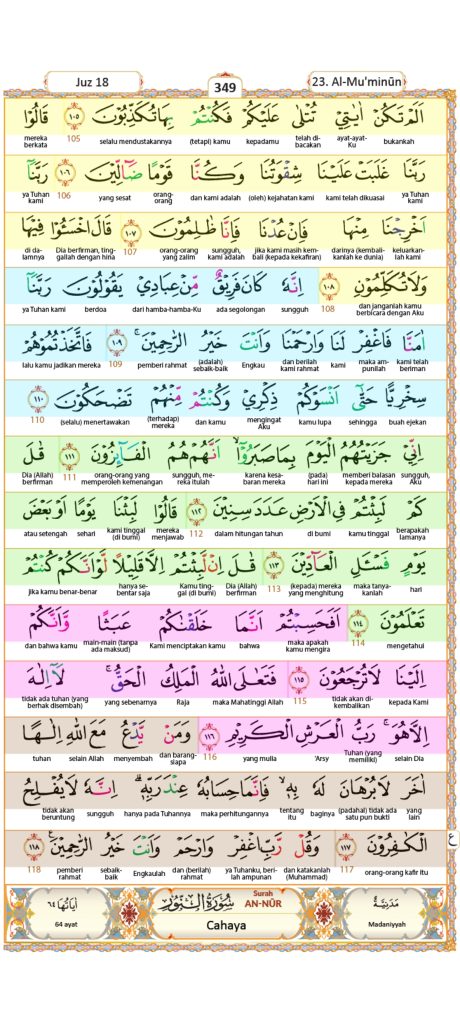 Juz 18
349
23. Al-Mu'minūn
اَلَمْ تَكُنْ اٰيٰتِيْ تُتْلٰى عَلَيْكُمْ فَكُنْتُمْ بِهَا تُكَذِّبُوْنَ ١٠٥ قَالُوْا
bukankah ayat-ayat-Ku telah di-bacakan kepadamu (tetapi) kamu selalu mendustakannya 105 mereka berkata
رَبَّنَا غَلَبَتْ عَلَيْنَا شِقْوَتُنَا وَكُنَّا قَوْمًا ضَاۤلِّيْنَ ١٠٦ رَبَّنَآ
ya Tuhan kami telah dikuasai kami (oleh) kejahatan kami dan kami adalah orang-orang yang sesat 106 ya Tuhan kami
اَخْرِجْنَا مِنْهَا فَاِنْ عُدْنَا فَاِنَّا ظٰلِمُوْنَ ١٠٧ قَالَ اخْسَـُٔوْا فِيْهَا
keluarkan-lah kami darinya (kembali-kanlah ke dunia) jika kami masih kem-bali (kepada kekafiran) sungguh, kami adalah orang-orang yang zalim 107 Dia berfirman, ting-gallah dengan hina di da-lamnya
وَلَا تُكَلِّمُوْنِ ١٠٨ اِنَّهٗ كَانَ فَرِيْقٌ مِّنْ عِبَادِيْ يَقُوْلُوْنَ رَبَّنَآ
dan janganlah kamu berbicara dengan Aku 108 sungguh ada segolongan dari hamba-hamba-Ku berdoa ya Tuhan kami
اٰمَنَّا فَاغْفِرْ لَنَا وَارْحَمْنَا وَاَنْتَ خَيْرُ الرّٰحِمِيْنَ ١٠٩ فَاتَّخَذْتُمُوْهُمْ
kami telah beriman maka am-punilah kami dan berilah kami rahmat Engkau (adalah) sebaik-baik pemberi rahmat 109 lalu kamu jadikan mereka
سِخْرِيًّا حَتّٰٓى اَنْسَوْكُمْ ذِكْرِيْ وَكُنْتُمْ مِّنْهُمْ تَضْحَكُوْنَ ١١٠
buah ejekan sehingga kamu lupa mengingat Aku dan kamu (terhadap) mereka (selalu) menertawakan 110
اِنِّيْ جَزَيْتُهُمُ الْيَوْمَ بِمَا صَبَرُوْٓا اَنَّهُمْ هُمُ الْفَاۤىِٕزُوْنَ ١١١ قٰلَ
sungguh, Aku memberi balasan kepada mereka (pada) hari ini karena kesa-baran mereka sungguh, me-reka itulah orang-orang yang memperoleh kemenangan 111 Dia (Allah) berfirman
كَمْ لَبِثْتُمْ فِى الْاَرْضِ عَدَدَ سِنِيْنَ ١١٢ قَالُوْا لَبِثْنَا يَوْمًا اَوْ بَعْضَ
berapakah lamanya kamu tinggal di bumi dalam hitungan tahun 112 mereka menjawab kami tinggal (di bumi) sehari atau setengah
يَوْمٍ فَسْـَٔلِ الْعَاۤدِّيْنَ ١١٣ قٰلَ اِنْ لَّبِثْتُمْ اِلَّا قَلِيْلًا لَّوْ اَنَّكُمْ كُنْتُمْ
hari maka tanya-kanlah (kepada) mereka yang menghitung 113 Dia (Allah) berfirman Kamu ting-gal (di bumi) hanya se-bentar saja jika kamu benar-benar
تَعْلَمُوْنَ ١١٤ اَفَحَسِبْتُمْ اَنَّمَا خَلَقْنٰكُمْ عَبَثًا وَّاَنَّكُمْ
mengetahui 114 maka apakah kamu mengira bahwa Kami menciptakan kamu main-main (tanpa ada maksud) dan bahwa kamu
اِلَيْنَا لَا تُرْجَعُوْنَ ١١٥ فَتَعٰلَى اللّٰهُ الْمَلِكُ الْحَقُّۚ لَآ اِلٰهَ
kepada Kami tidak akan di-kembalikan 115 maka Mahatinggi Allah Raja yang sebenarnya tidak ada tuhan (yang berhak disembah)
اِلَّا هُوَۚ رَبُّ الْعَرْشِ الْكَرِيْمِ ١١٦ وَمَنْ يَّدْعُ مَعَ اللّٰهِ اِلٰهًا
selain Dia Tuhan (yang memiliki) 'Arsy yang mulia 116 dan barang-siapa menyembah selain Allah tuhan
اٰخَرَ لَا بُرْهَانَ لَهٗ بِهٖۙ فَاِنَّمَا حِسَابُهٗ عِنْدَ رَبِّهٖۗ اِنَّهٗ لَا يُفْلِحُ
yang lain (padahal) tidak ada satu pun bukti baginya tentang itu maka perhitungannya hanya pada Tuhannya sungguh tidak akan beruntung
الْكٰفِرُوْنَ ١١٧ وَقُلْ رَّبِّ اغْفِرْ وَارْحَمْ وَاَنْتَ خَيْرُ الرّٰحِمِيْنَ ١١٨ ع
orang-orang kafir itu 117 dan katakanlah (Muhammad) ya Tuhanku, beri-lah ampunan dan (berilah) rahmat Engkaulah sebaik-baik pemberi rahmat 118
مَدَنِيَّةٌ Surah سُوْرَةُ النُّوْر اٰيَاتُهَا ٦٤
Madaniyyah AN-NŪR 64 ayat
Cahaya